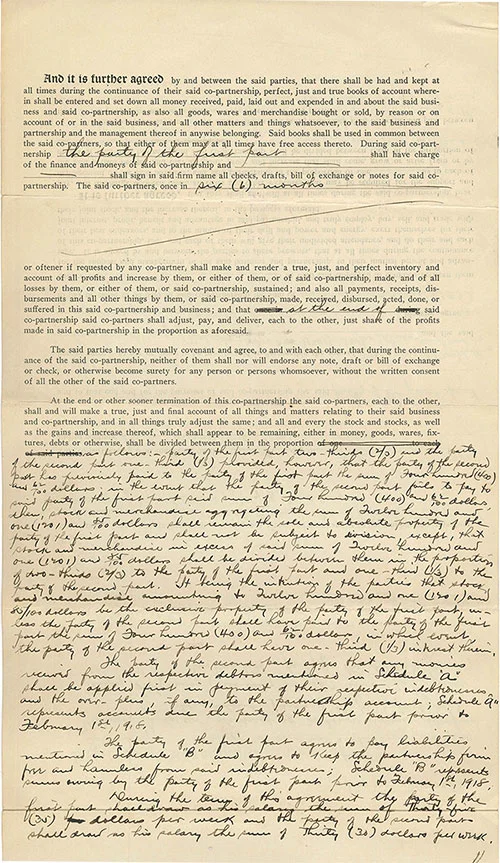 And it is further agreed by and between the said parties, that there shall be had and kept at
all times during the continuance of their said co-partnership, perfect, just and true books of account where-
in shall be entered and set down all money received, paid, laid out and expended in and about the said busi-
ness and said co-partnership, as also all goods, wares and merchandise bought or sold, by reason or on
account of or in the said business, and all other matters and things whatsoever, to the said business and
partnership and the management thereof in anywise belonging. Said books shall be used in common between
the said co-partners, so that either of them may at all times have free access thereto. During said co-part-
nership the party of the first part shall have charge
of the finance and moneys of said co-partnership and
shall sign in said firm name all checks, drafts, bill of exchange or notes for said co-
partnership. The said co-partners, once in six (6) months
or oftener if requested by any co-partner, shall make and render a true, just, and perfect inventory and
account of all profits and increase by them, or either of them, or of said co-partnership, made, and of all
losses by them, or either of them, or said co-partnership, sustained; and also all payments, receipts, dis-
bursements and all other things by them, or said co-partnership, made, received, disbursed, acted, done, or
suffered in this said co-partnership and business; and that at the end of said
co-partnership said co-partners shall adjust, pay, and deliver, each to the other, just share of the profits
made in said co-partnership in the proportion as aforesaid.
The said parties hereby mutually covenant and agree, to and with each other, that during the continu-
ance of the said co-partnership, neither of them shall nor will endorse any note, draft or bill of exchange
or check, or otherwise become surety for any person or persons whomsoever, without the written consent
of all the other of the said co-partners.
At the end or other sooner termination of this co-partnership the said co-partners, each to the other,
shall and will make a true, just and final account of all things and matters relating to their said business
and co-partnership, and in all things truly adjust the same; and all and every the stock and stocks, as well
as the gains and increase thereof, which shall appear to be remaining, either in money, goods, wares, fix-
tures, debts or otherwise, shall be divided between them in the proportion
as follows:- party of the first part two-thirds (2/3) and the party
of the second part one-third (1/3) provided, however, that the party of the second
part has previously paid to the party of the first part the sum of Four hundred (400)
and 62/100 dollars in the event that the party of the second part fails to pay to
said party of the first part said sum of Four hundred (400) and 62/100 dollars,
then stock and merchandise aggregating the sum of Twelve hundred and
one (1201) and /100 dollars shall remain the sole and absolute property of the
party of the first part and shall not be subject to division except, that
stock and merchandise in excess of said sum of Twelve hundred and
one (1201) and /100 dollars shall be divided between them in the proportion
of two-thirds (2/3) to the party of the first part and one-third (1/3) to the
party of the second part. It being the intention of the parties that stock
and merchandise amounting to Twelve hundred and one (1201) and
/100 dollars be the exclusive property of the party of the first part, un-
less the party of the second part shall have paid to the party of the first
part the sum of Four hundred (400) and 62/100 dollars, in which event,
the party of the second part shall have one-third (1/3) interest therein.
The party of the second part agrees that any monies
received from the respective debtors mentioned in Schedule "A"
shall be applied first in payment of their respective indebtedness,
and the over-plus if any, to the partnership account; Schedule "A"
represents accounts due the party of the first part prior to
February 1st, 1918.
The party of the first part agrees to pay liabilities
mentioned in Schedule "B" and agrees to keep the partnership firm
free and harmless from said indebtedness; Schedule "B" represents
sums owing by the party of the first part prior to February 1st, 1918
During the term of this agreement the party of the
first part shall draw as his salary the sum of Thirty-five
(35) dollars per week and the party of the second part
shall draw as his salary the sum of Thirty (30) dollars per week.